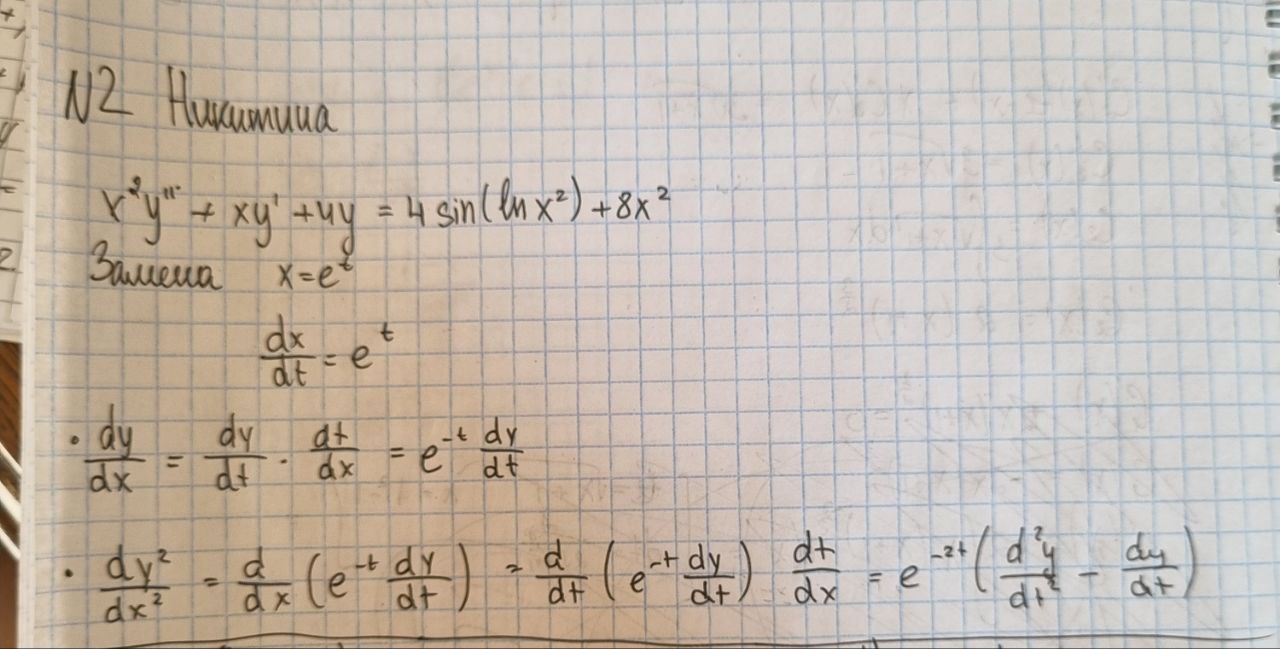 N2 Никитина
x²y'' + xy' + 4y = 4 sin(ln x²) + 8x²
Замена x = e^t
dx/dt = e^t
• dy/dx = dy/dt · dt/dx = e^-t dy/dt
• dy²/dx² = d/dx (e^-t dy/dt) = d/dt (e^-t dy/dt) dt/dx = e^-2t (d²y/dt² - dy/dt)